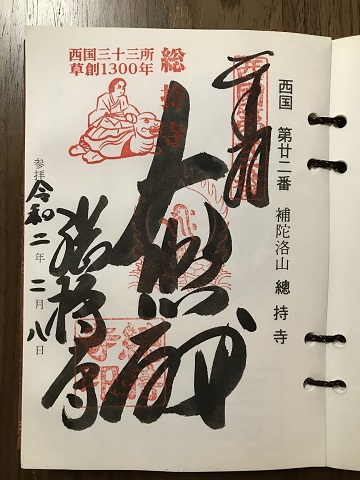 西国 第廿二番 補陀洛山 總持寺
奉拝
大悲殿
総持寺
西国三十三所
草創1300年
総持寺
参拝 令和二年二月八日